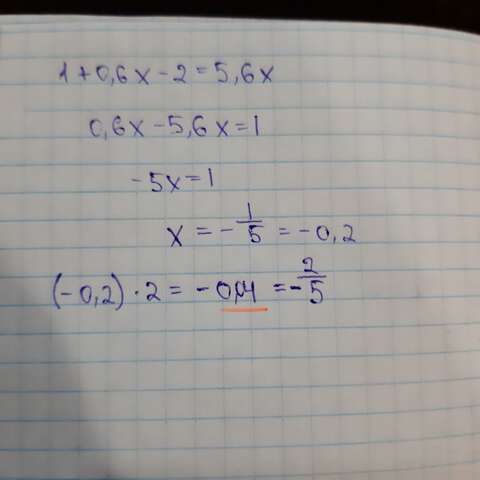 1+0,6x-2=5,6x
0,6x-5,6x=1
-5x=1
x=-1/5=-0,2
(-0,2)·2=-0,4=-2/5